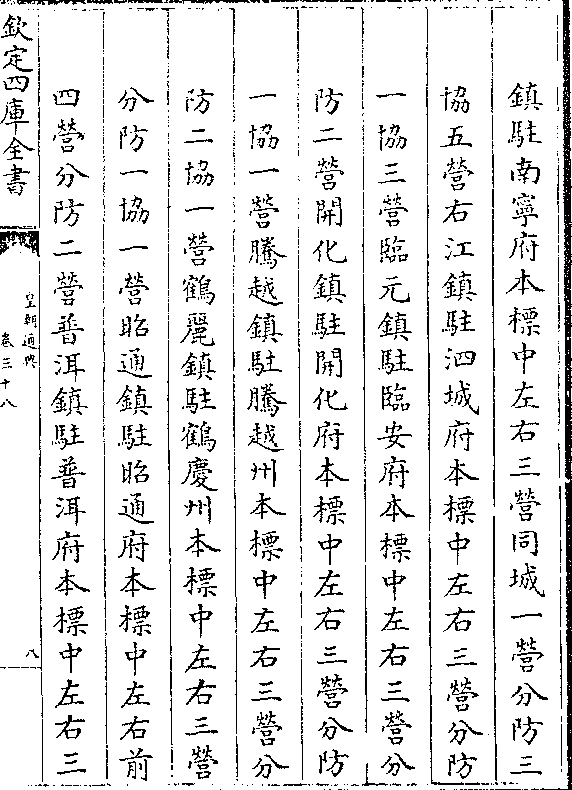 鎮駐南寧府本標中左右三營同城一營分防三
協五營右江鎮駐泗城府本標中左右三營分防
一協三營臨元鎮駐臨安府本標中左右三營分
防二營開化鎮駐開化府本標中左右三營分防
一協一營騰越鎮駐騰越州本標中左右三營分
防二協一營鶴麗鎮駐鶴慶州本標中左右三營
分防一協一營昭通鎮駐昭通府本標中左右前
四營分防二營普洱鎮駐普洱府本標中左右三
欽定四庫全書
皇朝通典
卷三十八
八